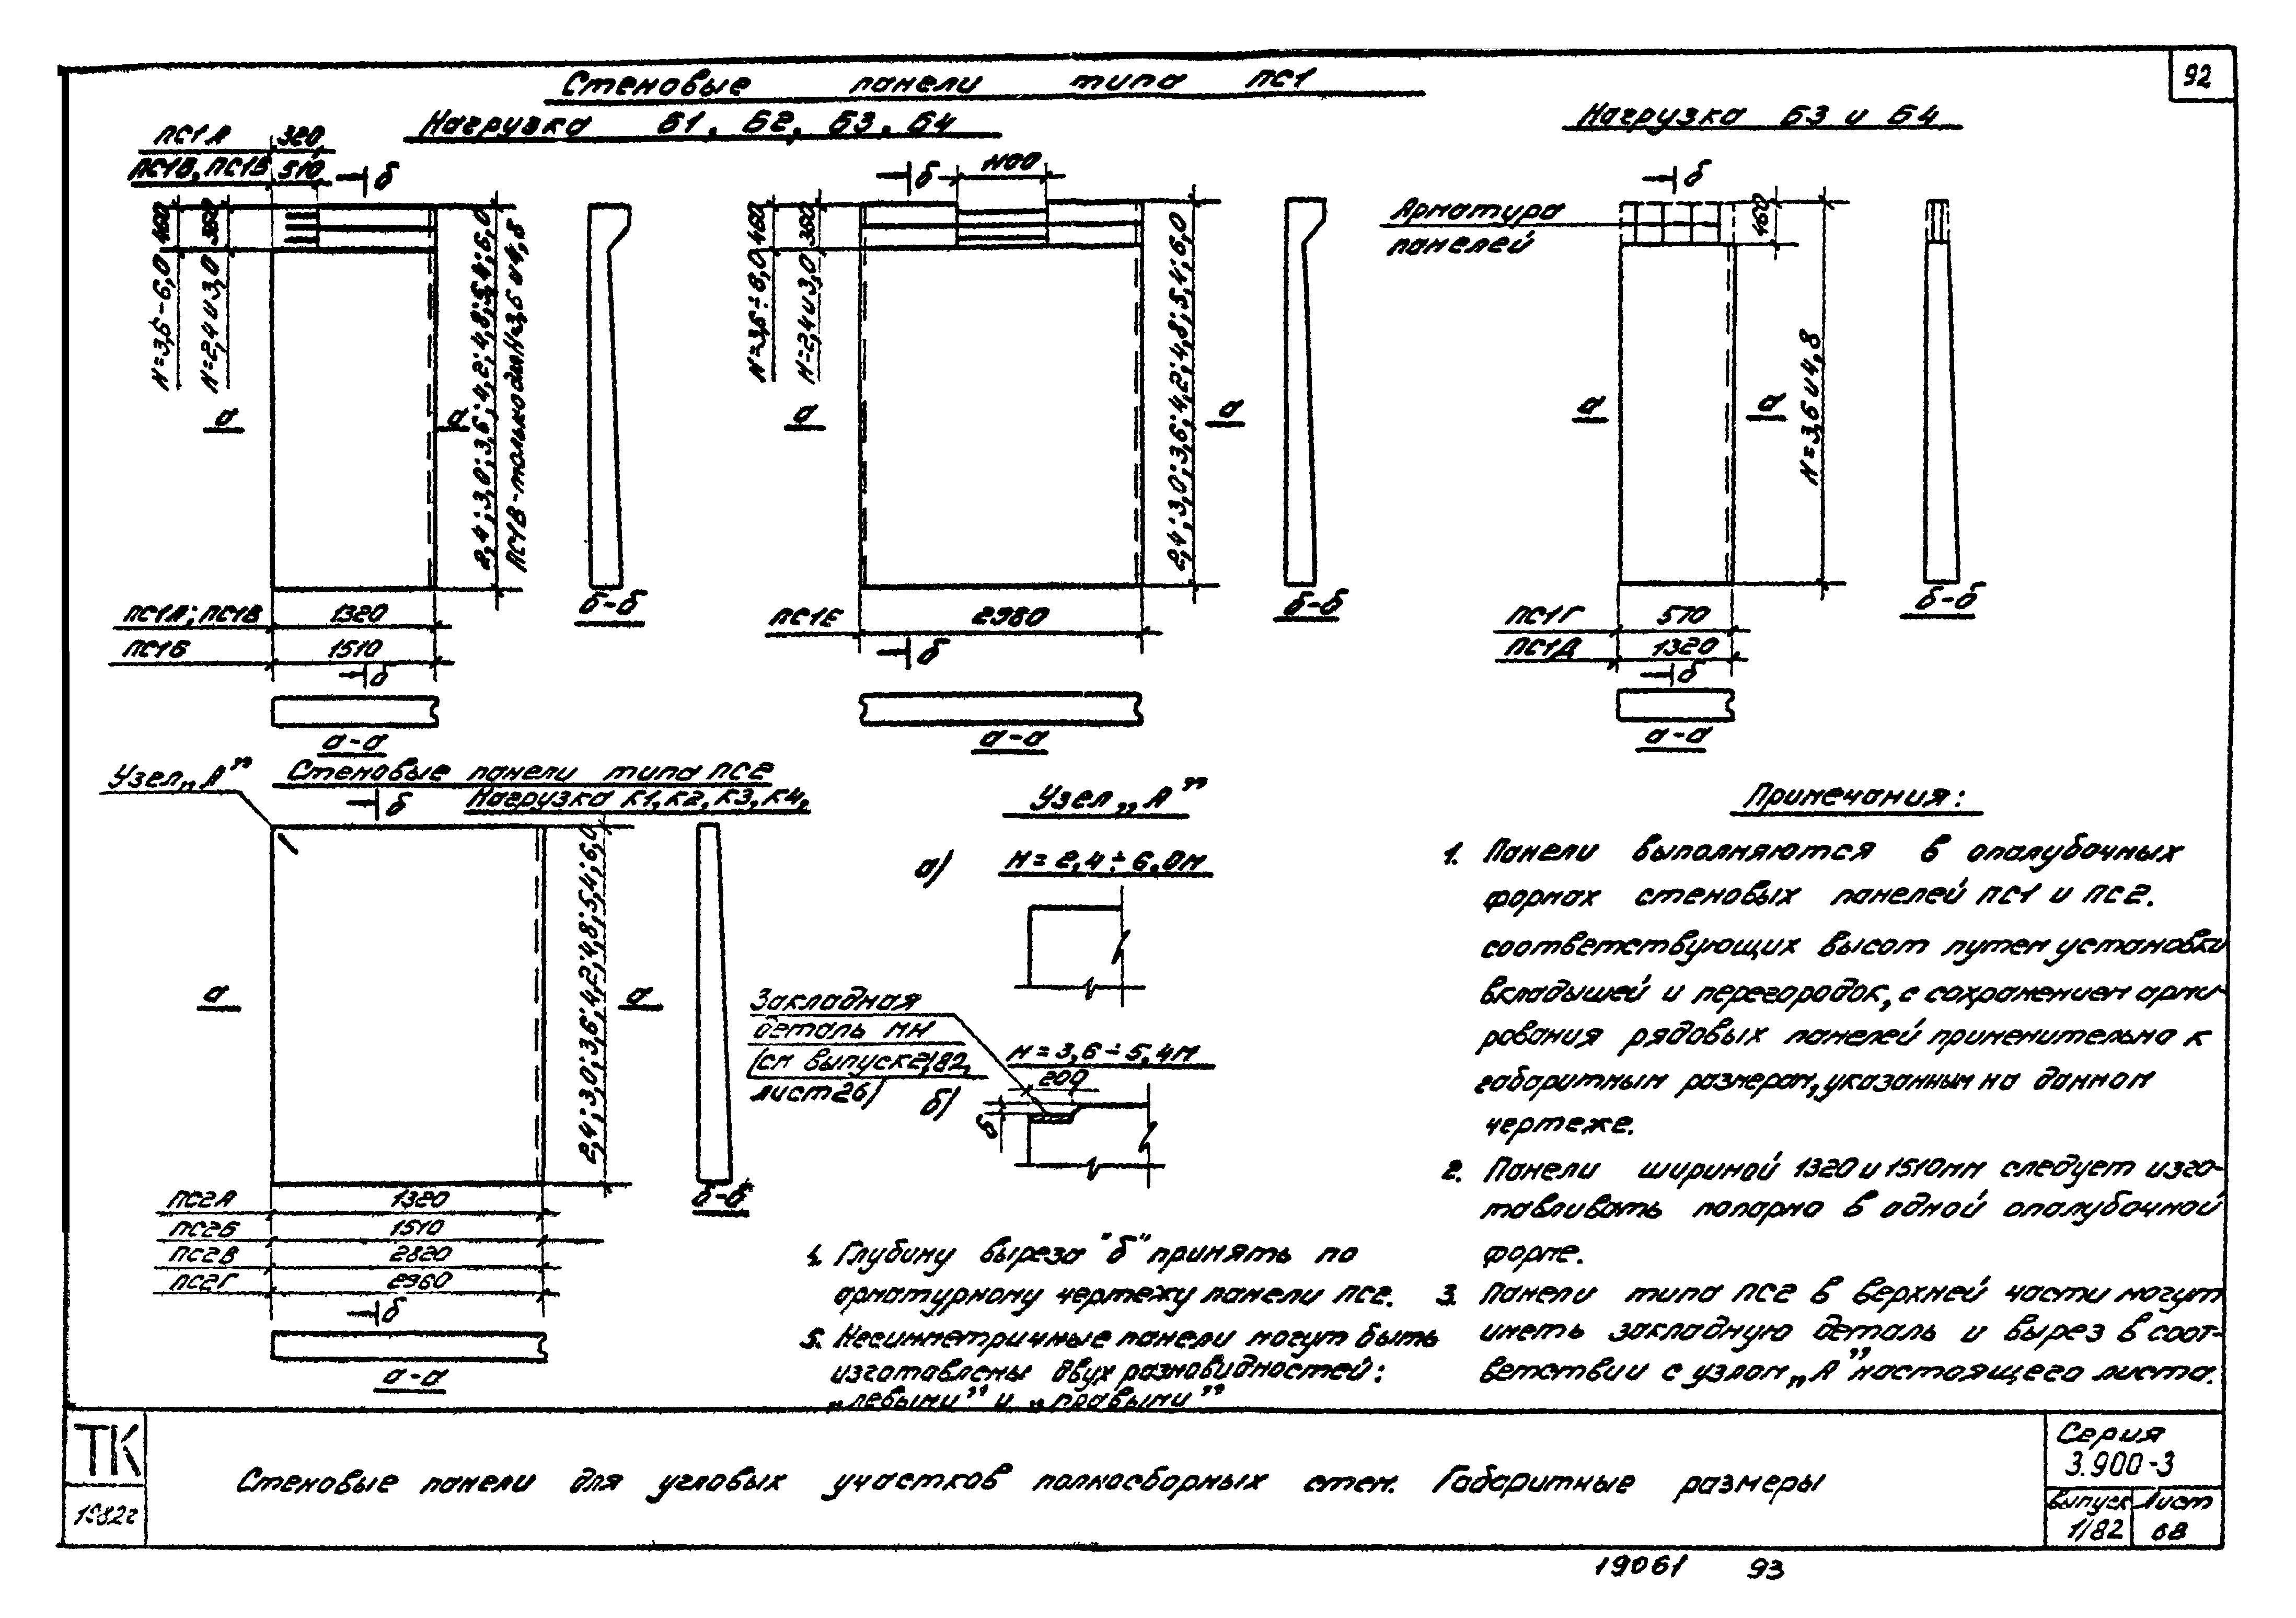 92
Стеновые панели типа ПС1
Нагрузка Б1, Б2, Б3, Б4
Нагрузка Б3 и Б4
ПС1А 320
ПС1Б, ПС1В 510
б
460
360
H=3,6-6,0
H=2,4 и 3,0
а
а
2,4; 3,0; 3,6; 4,2; 4,8; 5,4; 6,0
ПС1В-только для H=3,6 и 4,8
б-б
ПС1А; ПС1В 1320
ПС1Б 1510
б
а-а
б
1100
460
360
H=3,6÷6,0
H=2,4 и 3,0
а
а
2,4; 3,0; 3,6; 4,2; 4,8; 5,4; 6,0
б-б
ПС1Е 2980
б
а-а
Арматура
панелей
б
460
а
а
H=3,6 и 4,8
б-б
ПС1Г 570
ПС1Д 1320
б
а-а
Узел „А”
Стеновые панели типа ПС2
Нагрузка К1, К2, К3, К4,
б
а
а
2,4; 3,0; 3,6; 4,2; 4,8; 5,4; 6,0
б-б
ПС2А 1320
ПС2Б 1510
ПС2В 2820
ПС2Г 2960
б
а-а
Узел „А”
а) H=2,4÷6,0м
Закладная
деталь МН
(см выпуск 2/82,
лист 26)
б)
H=3,6÷5,4м
200
б
Примечания:
1. Панели выполняются в опалубочных
формах стеновых панелей ПС1 и ПС2.
соответствующих высот путем установки
вкладышей и перегородок, с сохранением арми-
рования рядовых панелей применительно к
габаритным размерам, указанным на данном
чертеже.
2. Панели шириной 1320 и 1510мм следует изго-
тавливать попарно в одной опалубочной
форме.
3. Панели типа ПС2 в верхней части могут
иметь закладную деталь и вырез в соот-
ветствии с узлом „А” настоящего листа.
4. Глубину выреза "б" принять по
арматурному чертежу панели ПС2.
5. Несимметричные панели могут быть
изготовлены двух разновидностей:
„левыми” и „правыми”
ТК
1982г
Стеновые панели для угловых участков полносборных стен. Габаритные размеры
Серия
3.900-3
Выпуск Лист
1/82 68
19061 93